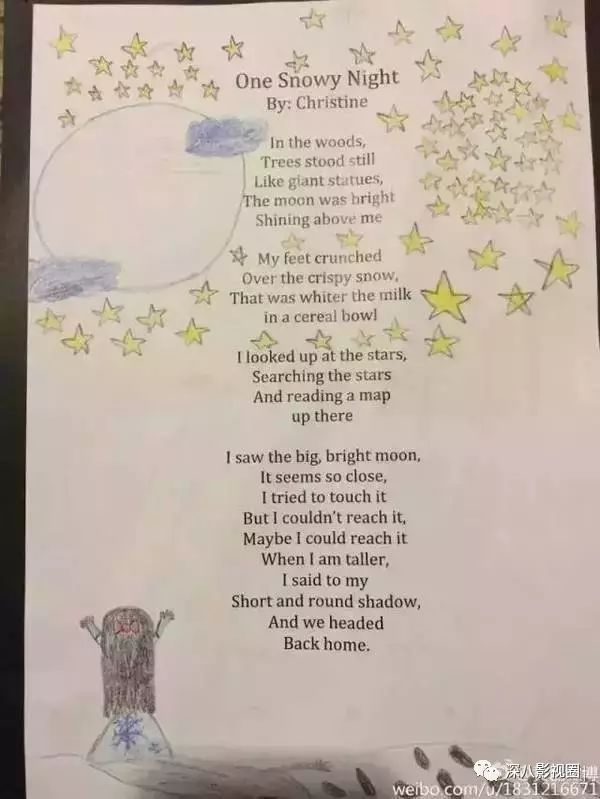 One Snowy Night
By: Christine
In the woods,
Trees stood still
Like giant statues,
The moon was bright
Shining above me
My feet crunched
Over the crispy snow,
That was whiter the milk
in a cereal bowl
I looked up at the stars,
Searching the stars
And reading a map
up there
I saw the big, bright moon,
It seems so close,
I tried to touch it
But I couldn't reach it,
Maybe I could reach it
When I am taller,
I said to my
Short and round shadow,
And we headed
Back home.
深八影视圈
博
weibo.com/u/1831216671